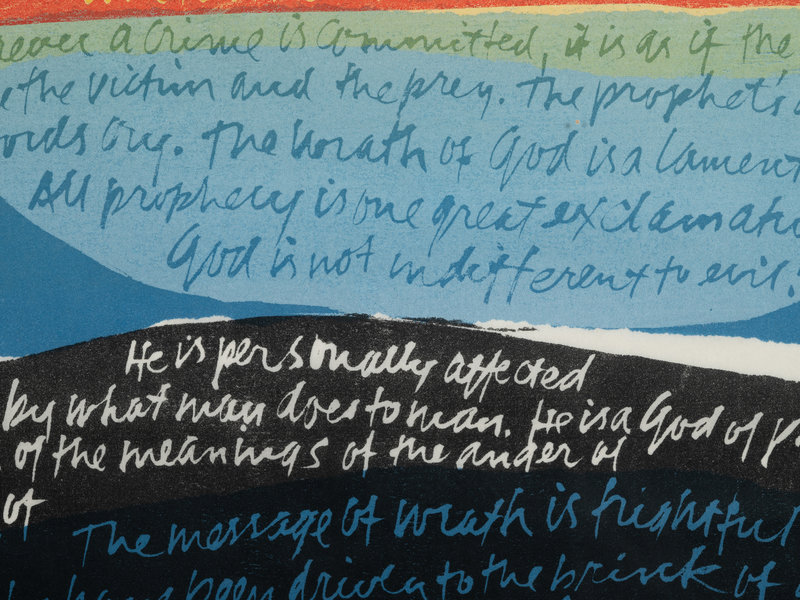 a Crime is Committed, it is as if the
the victim and the prey. The prophet's
ords Cry. The wrath of God is a lament
All prophecy is one great exclamati
God is not indifferent to evil!
He is personally affected
by what man does to man. He is a God of p
of the meanings of the ander of
of
The message of wrath is frightful
been driven to the brink of